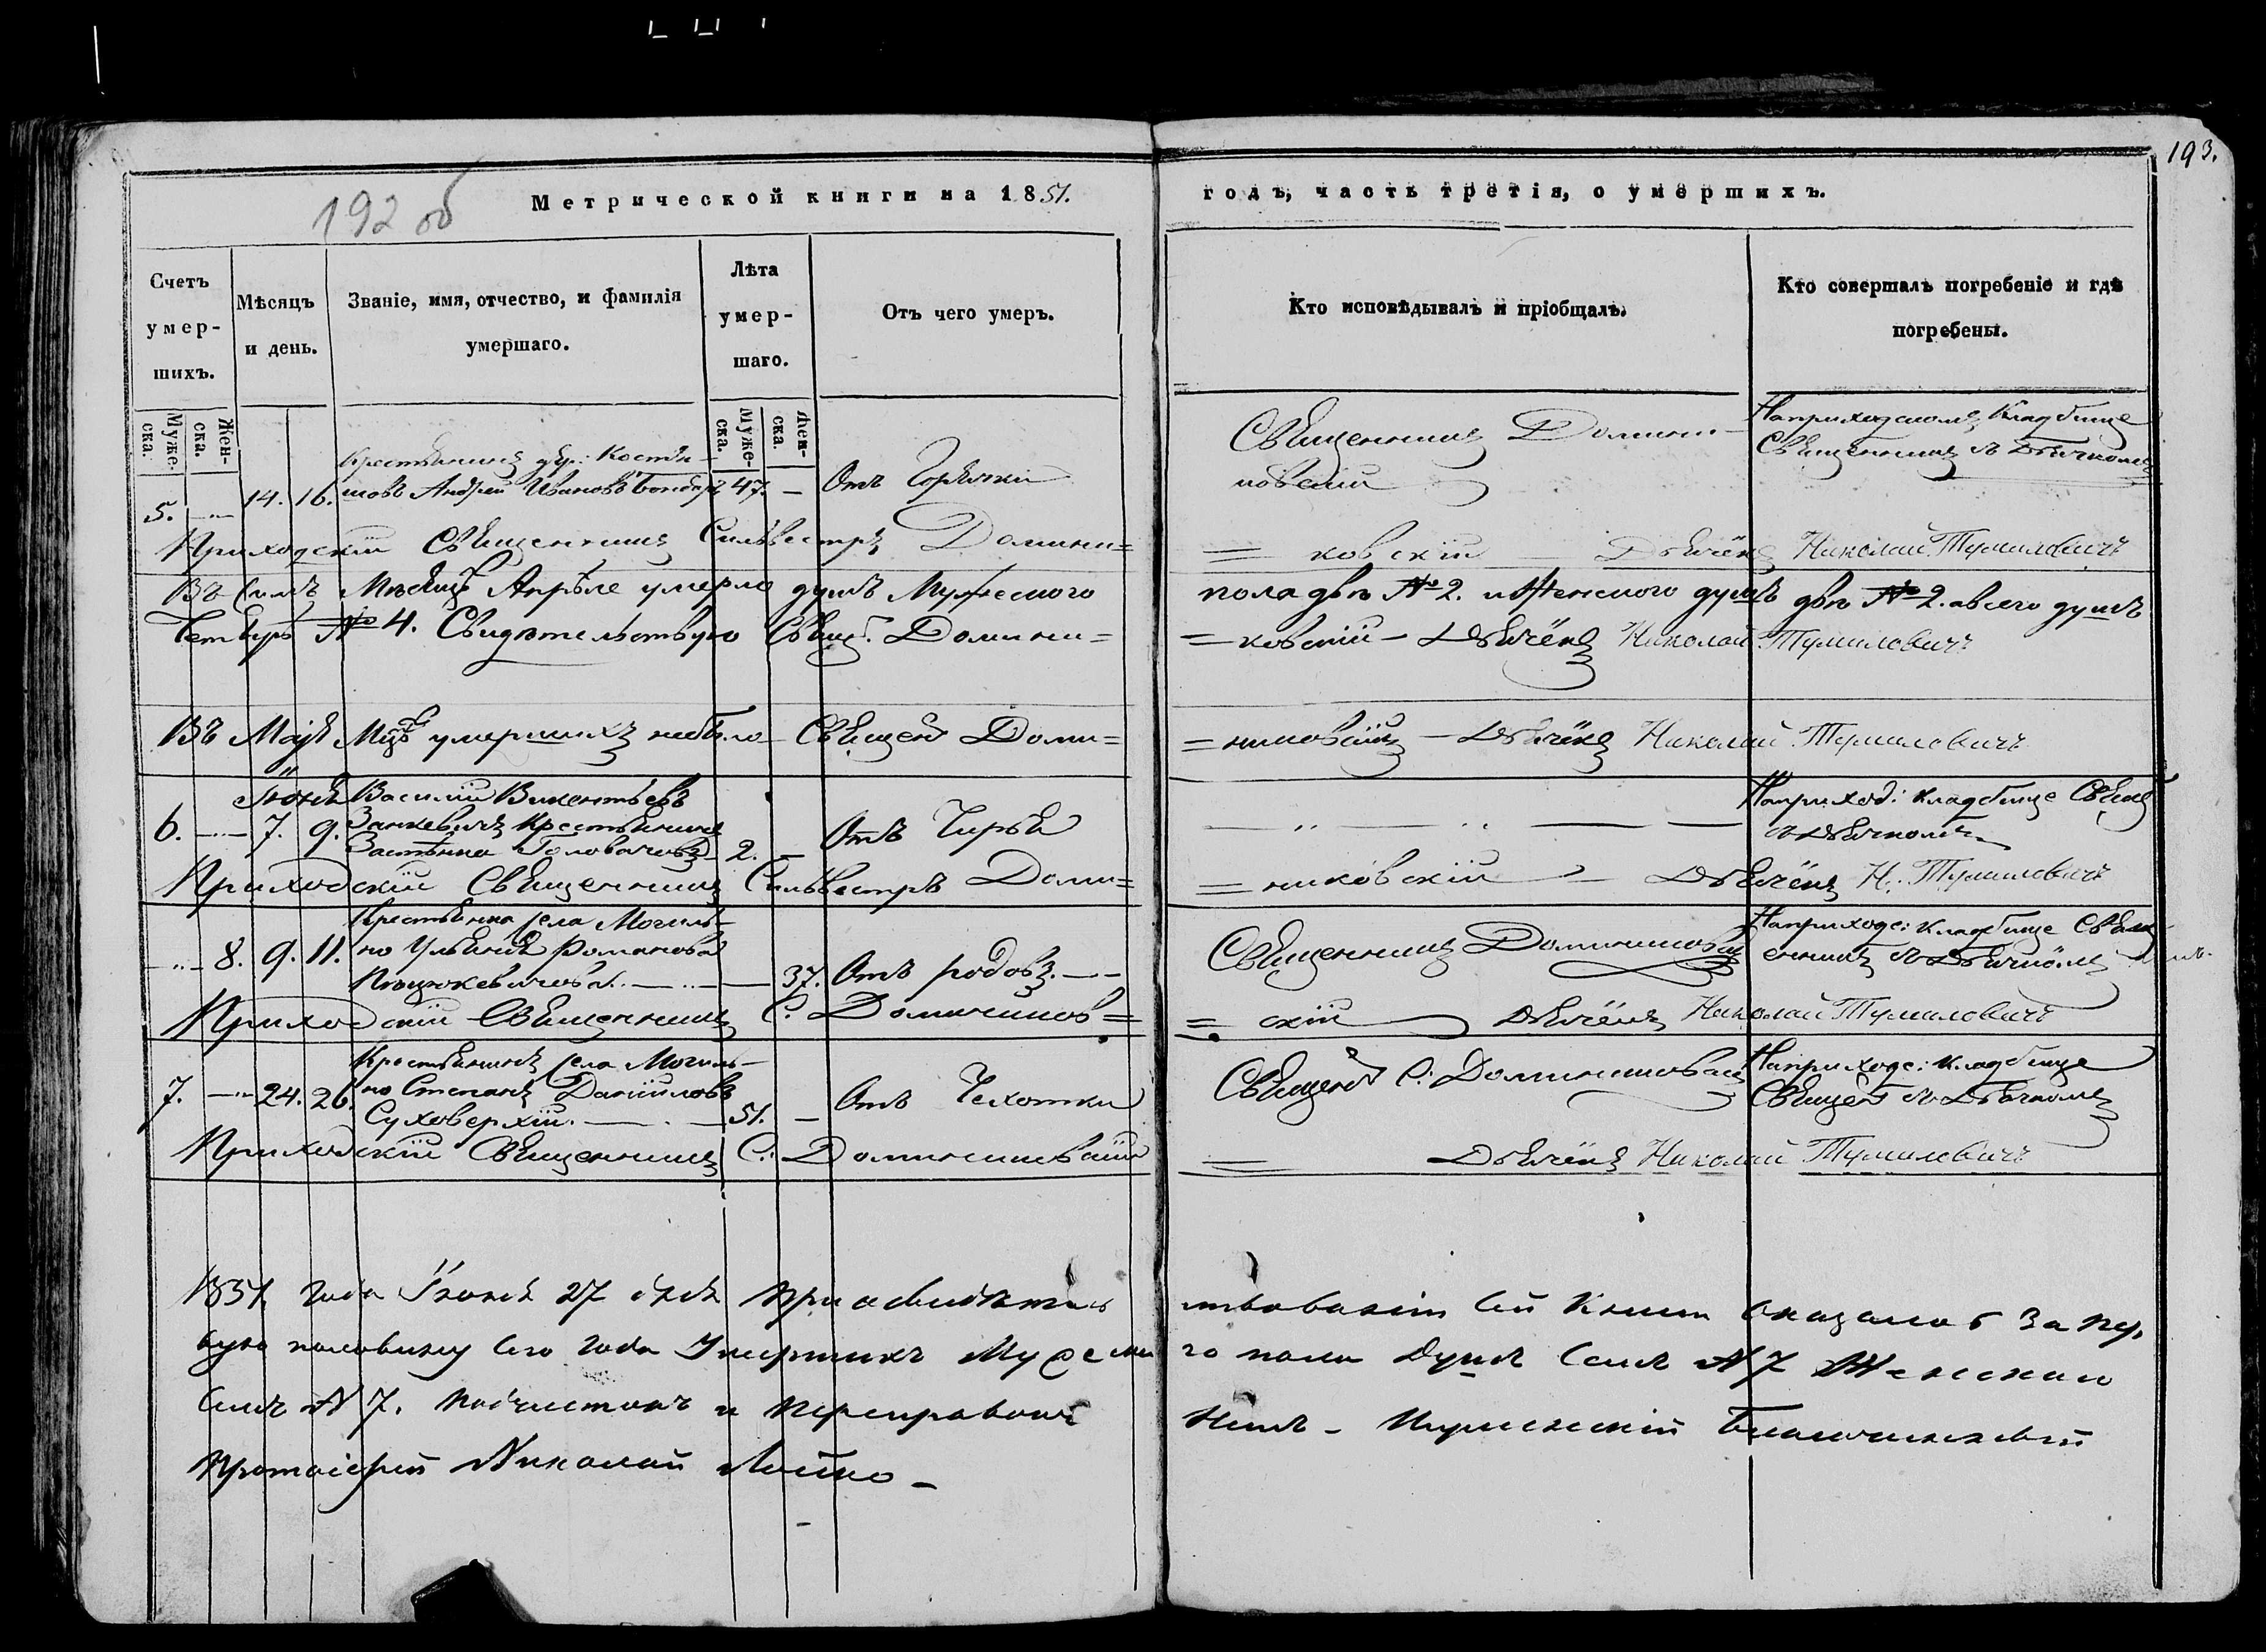 193.
192 об
Метрической книги на 1851.
годъ, часть третія, о умершихъ.
Счетъ умер-шихъ.
Мѣсяцъ и день.
Званіе, имя, отчество, и фамилія умершаго.
Лѣта умер-шаго.
Отъ чего умеръ.
Кто исповѣдывалъ и пріобщалъ.
Кто совершалъ погребеніе и гдѣ погребены.
Муже-ска.
Жен-ска.
Муже-ска.
Жен-ска.
5. 14. 16.
Крестьянинъ дер: Костю-
шовъ Андрей Ивановъ Бондар 47. —
Отъ Горячки
Священникъ Домини-
ковскій
На приходскомъ Кладбище
Священникъ съ Дьячкомъ
Приходскій Священникъ Сильвестръ Домини=
= ковскій Дьячёкъ Николай Тумиловичъ
Въ Семъ Месяцѣ Апрѣле умерло душъ Мужескаго
пола двѣ № 2. и Женскаго душъ двѣ № 2. авсего душъ
Четыре № 4. Свидѣтельствую Свящ. Домини=
= ковскій — Дьячёкъ Николай Тумиловичъ
Въ Маѣ Мцѣ умершихъ небыло Священ Доми=
= никовскій — Дьячёкъ Николай Тумиловичъ
Іюнь
6. 7. 9.
Василій Викентьевъ
Занкевичъ Крестьянинъ
Застѣнка Головачевъ 2. —
Отъ Чирья
На приход: кладбище Свящ
съ Дьячкомъ
Приходскій Священникъ Сильвестръ Доми=
= никовскій — Дьячёкъ Н. Тумиловичъ
8. 9. 11.
Крестьянка села Могиль-
но Ульяна Романова
37. Отъ родовъ. —
Священникъ Доминиковскій
На приходс: кладбище Свящ
енникъ съ Дьячкомъ
Приходскій Священникъ С. Домиников=
= скій Дьячёкъ Николай Тумиловичъ
7. 24. 26.
Крестьянинъ села Могиль-
но Степанъ Даніиловъ
Суховерхій. 51. —
Отъ Чехотки
Священ С: Доминиковскій
На приходс: кладбище
Священ съ Дьячкомъ
Приходскій Священникъ С: Доминиковскій
= Дьячёкъ Николай Тумиловичъ
1851 года Іюня 27 дня при освидѣтель
ствованіи сей книги оказалось за пер
вую половину сего года Умершихъ Мужеска
го пола Душъ Семь № 7 Женскаго
Семь № 7. подчистокъ и переправокъ
Нетъ — Благочинный
Протоіерей Николай